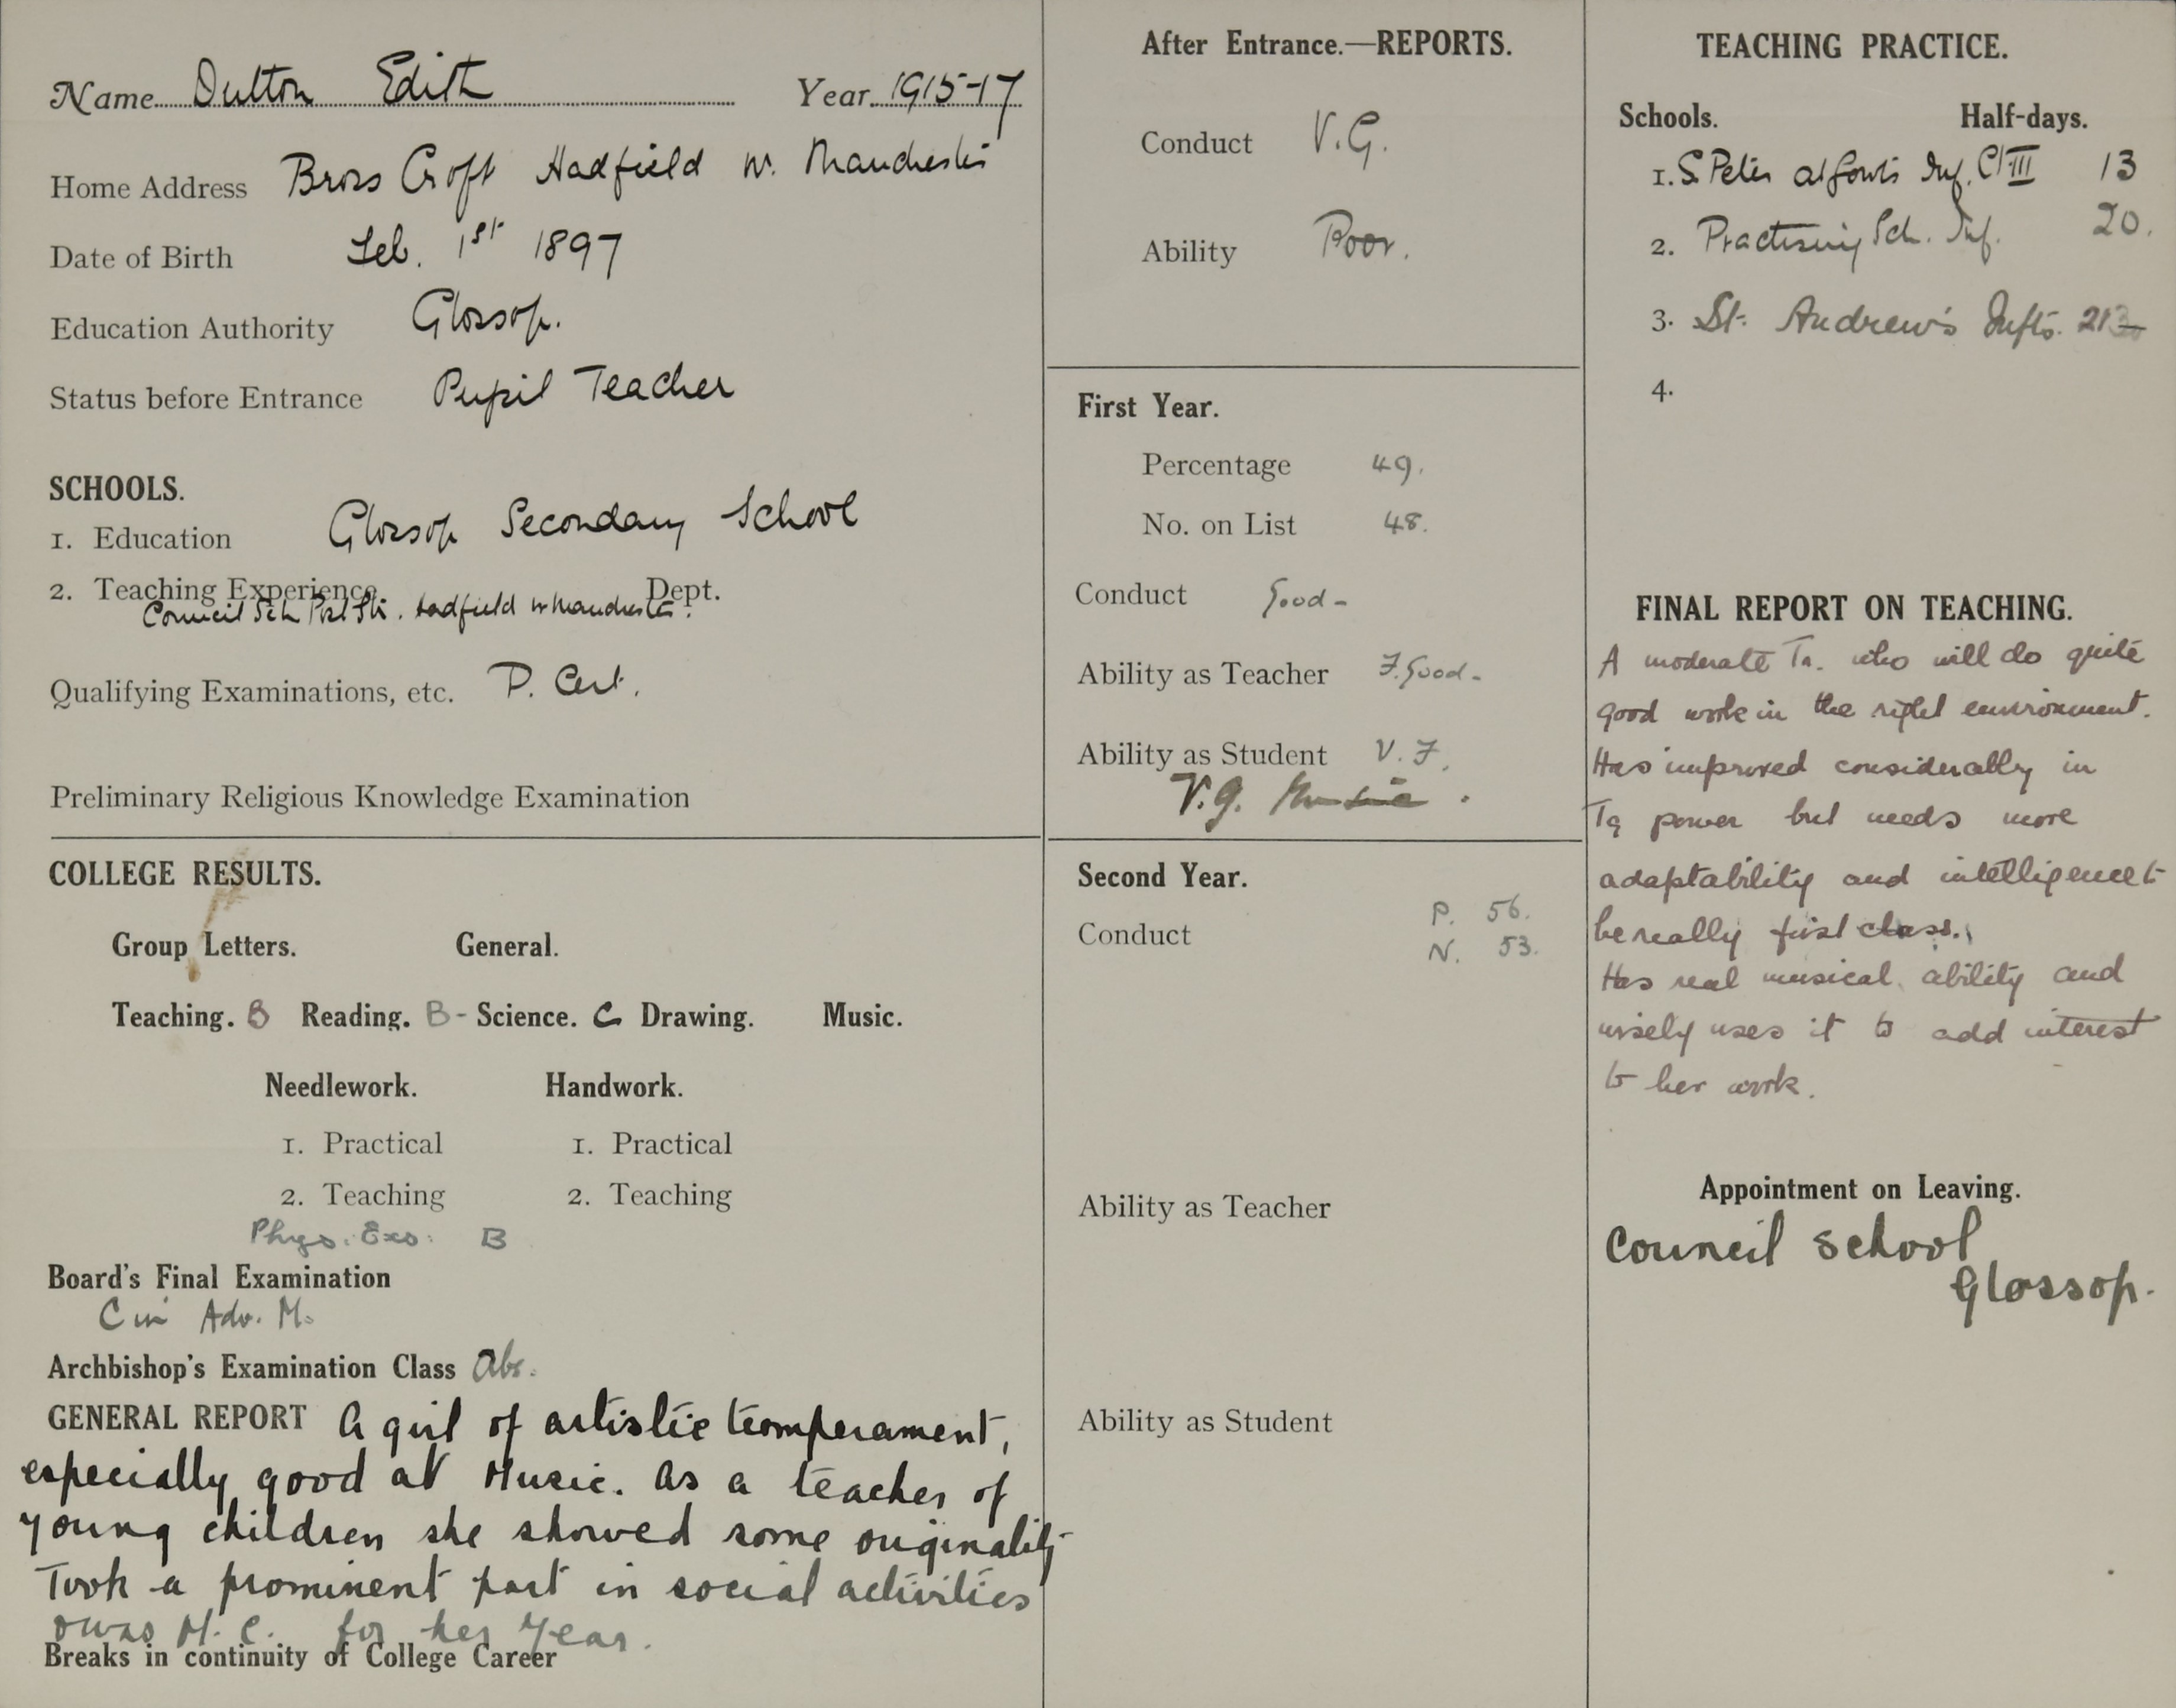 Name Dutton Edith Year 1915-17
Home Address Bross Croft Hadfield nr. Manchester
Date of Birth Feb. 1st 1897
Education Authority Glossop.
Status before Entrance Pupil Teacher
SCHOOLS.
1. Education Glossop Secondary School
2. Teaching Experience Dept.
Council Sch Hadfield nr Manchester.
Qualifying Examinations, etc. P. Cert.
Preliminary Religious Knowledge Examination
COLLEGE RESULTS.
Group Letters. General.
Teaching. B Reading. B- Science. C Drawing. Music.
Needlework. Handwork.
1. Practical 1. Practical
2. Teaching 2. Teaching
Phys. Exs: B
Board's Final Examination
C in Adv. M.
Archbishop's Examination Class Abs.
GENERAL REPORT A girl of artistic temperament,
especially good at Music. As a teacher of
young children she showed some originality
Took a prominent part in social activities
& was M.C. for her year.
Breaks in continuity of College Career
After Entrance.—REPORTS.
Conduct V.G.
Ability Poor.
First Year.
Percentage 49.
No. on List 48.
Conduct Good-
Ability as Teacher F. Good-
Ability as Student V. F.
V.g. Music.
Second Year.
P. 56.
Conduct
N. 53.
Ability as Teacher
Ability as Student
TEACHING PRACTICE.
Schools. Half-days.
1. S. Peter at Gowts Inf. Cl III 13
2. Practising Sch. Inf. 20.
3. St. Andrew's Infts. 21
4.
FINAL REPORT ON TEACHING.
A moderate Tr. who will do quite
good work in the right environment.
Has improved considerably in
Tg power but needs more
adaptability and intelligence to
be really first class.
Has real musical ability and
wisely uses it to add interest
to her work.
Appointment on Leaving.
Council School
Glossop.